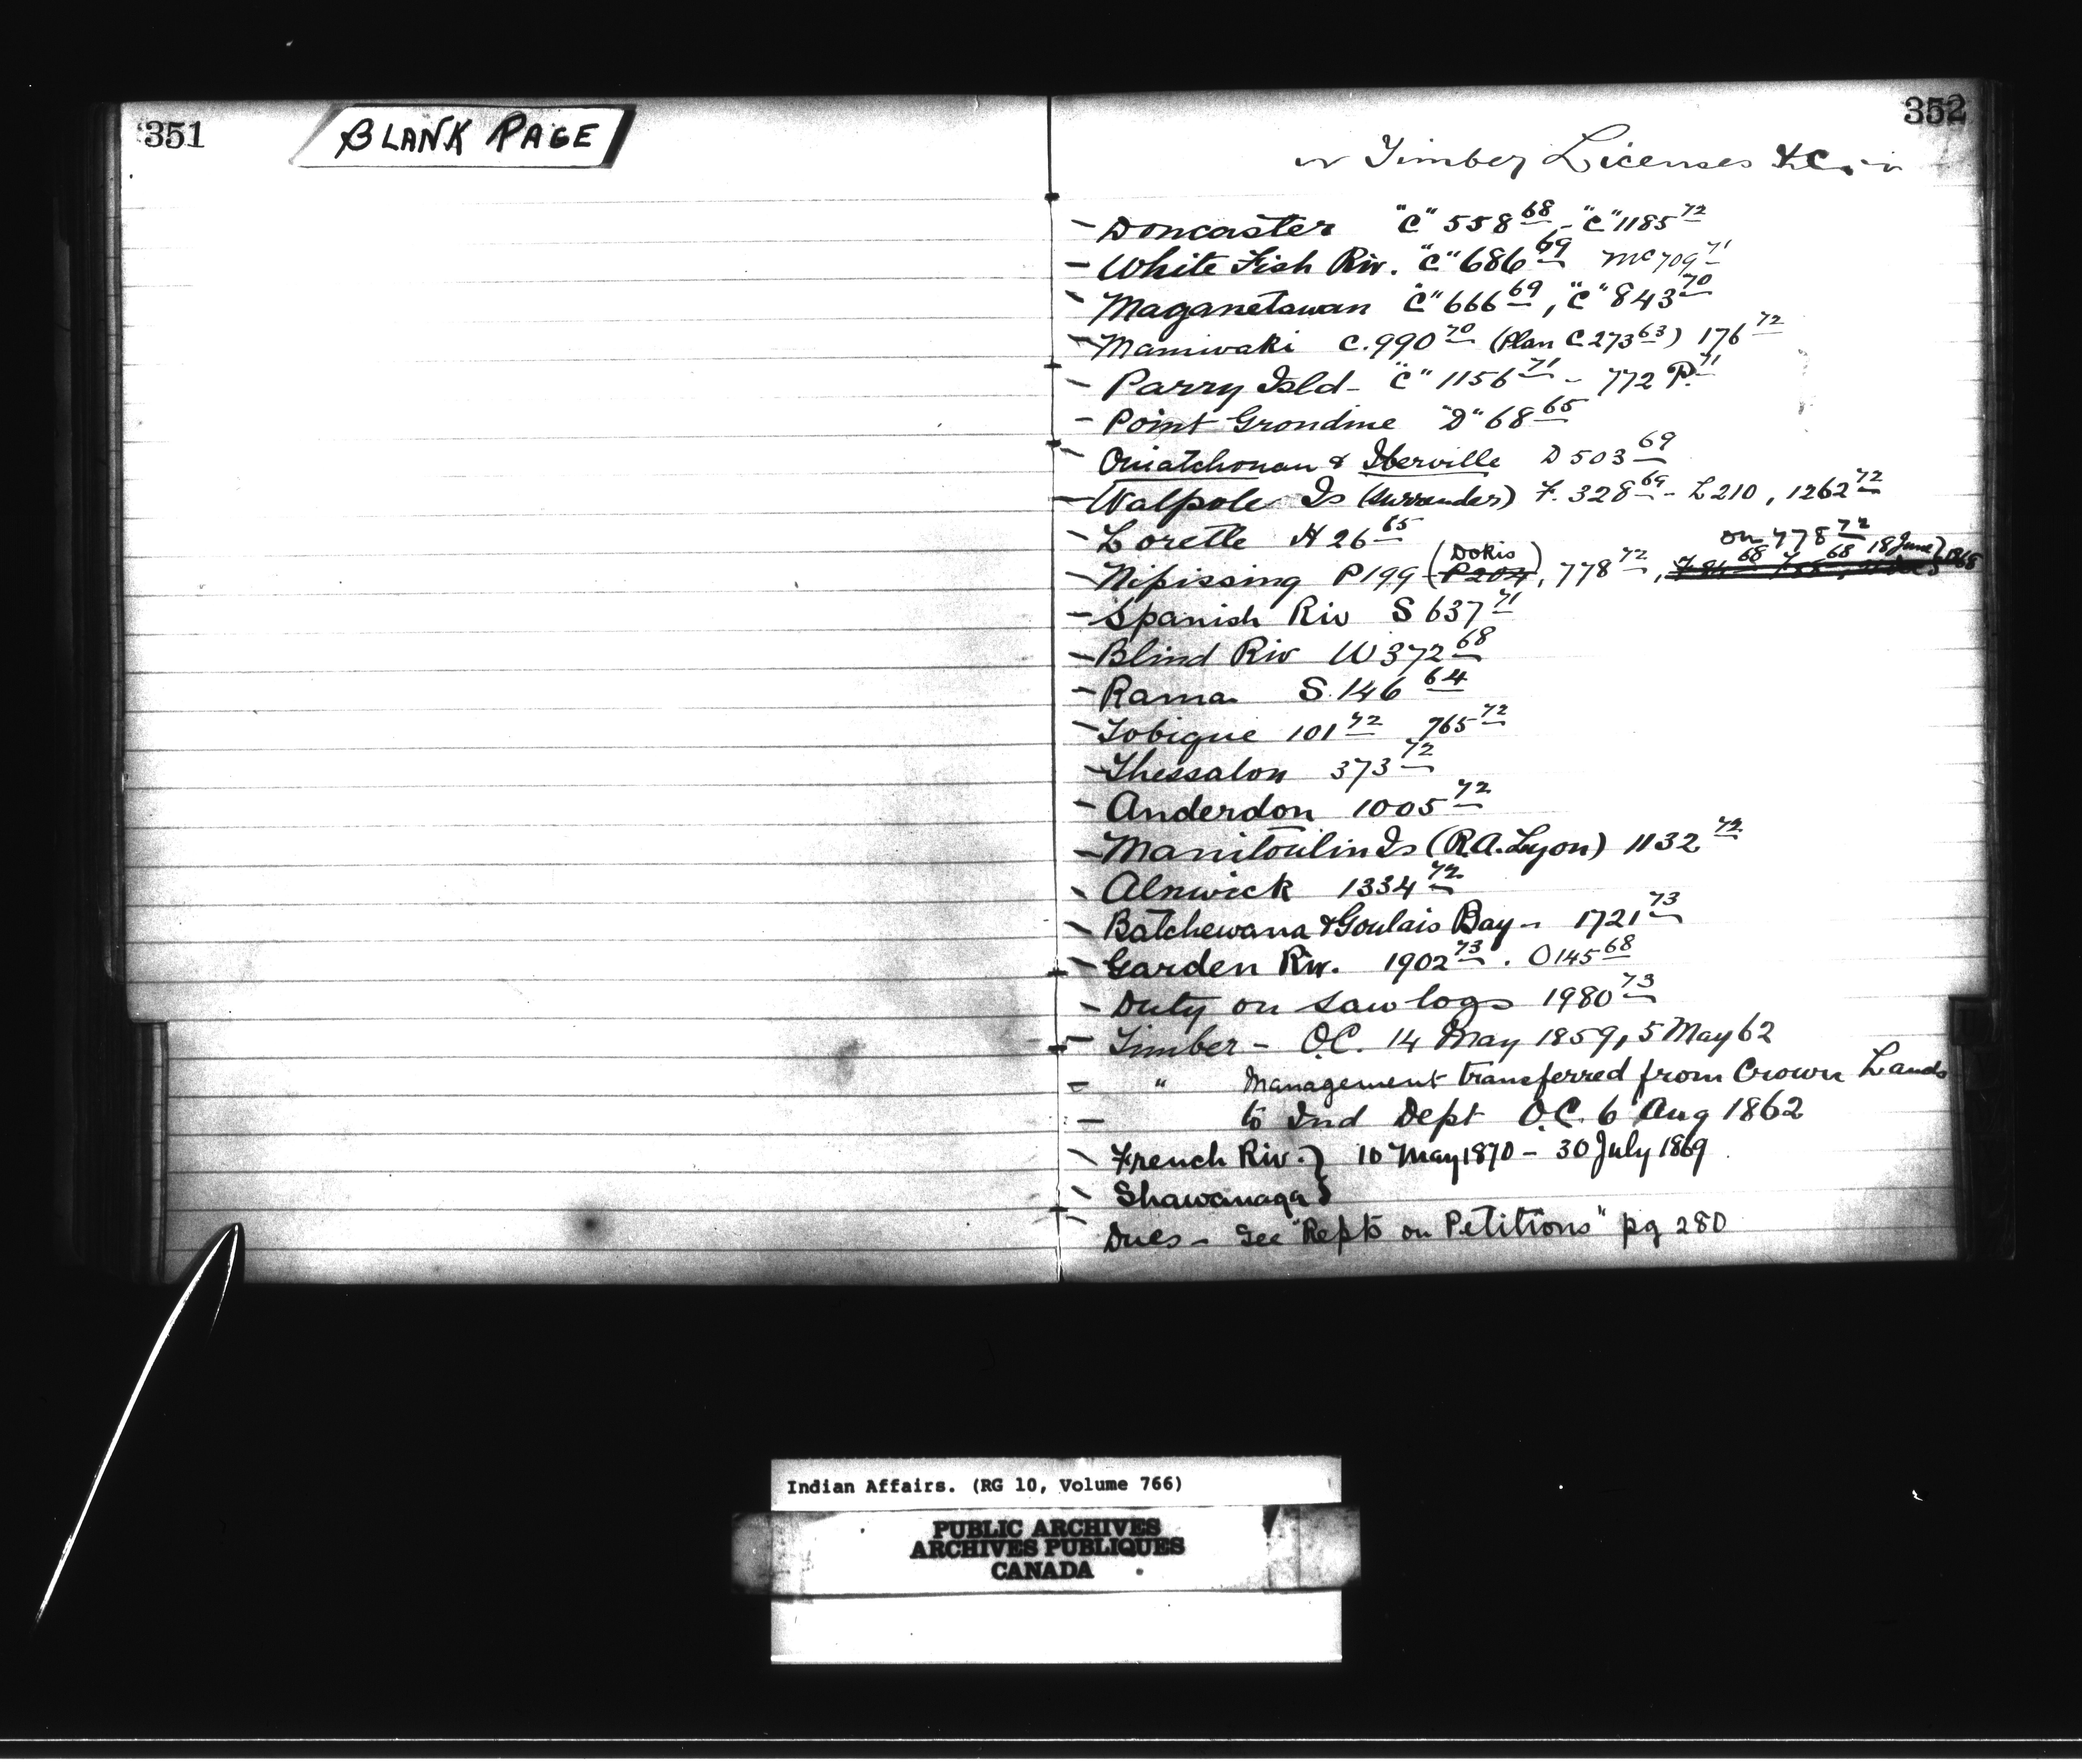 351
BLANK PAGE
352
Timber Licenses &c.
- Doncaster "C" 558 68 - "C" 1185 72
- White Fish Riv. "C" 686 69 Mc 709 71
- Maganetawan "C" 666 69, "C" 843 70
- Maniwaki C. 990 70 (Plan C 273 63) 176 72
- Parry Isld - "C" 1156 71 - 772 P. 71
- Point Grondine "D" 68 65
- Ouiatchouan & Iberville D 503 69
- Walpole Is (surrender) F. 328 69 - L 210, 1262 72
- Lorette H 26 65
on 778 72
(Dokis) 18 June 1868
- Nipissing P 199 (P 204, 778 72,
- Spanish Riv S 637 71
- Blind Riv W 372 68
- Rama S. 146 64
- Tobique 101 72 765 72
- Thessalon 373 72
- Anderdon 1005 72
- Manitoulin Is (R.A. Lyon) 1132 72
- Alnwick 1334 72
- Batchewana & Goulais Bay - 1721 73
- Garden Riv. 1902 73. O 145 68
- Duty on Saw logs 1980 73
- Timber - O.C. 14 May 1859, 5 May 62
- " Management transferred from Crown Lands
- to Ind Dept O.C. 6 Aug 1862
- French Riv. } 10 May 1870 - 30 July 1869
- Shawanaga }
- Dues - See "Repts on Petitions" pg 280
Indian Affairs. (RG 10, Volume 766)
PUBLIC ARCHIVES
ARCHIVES PUBLIQUES
CANADA